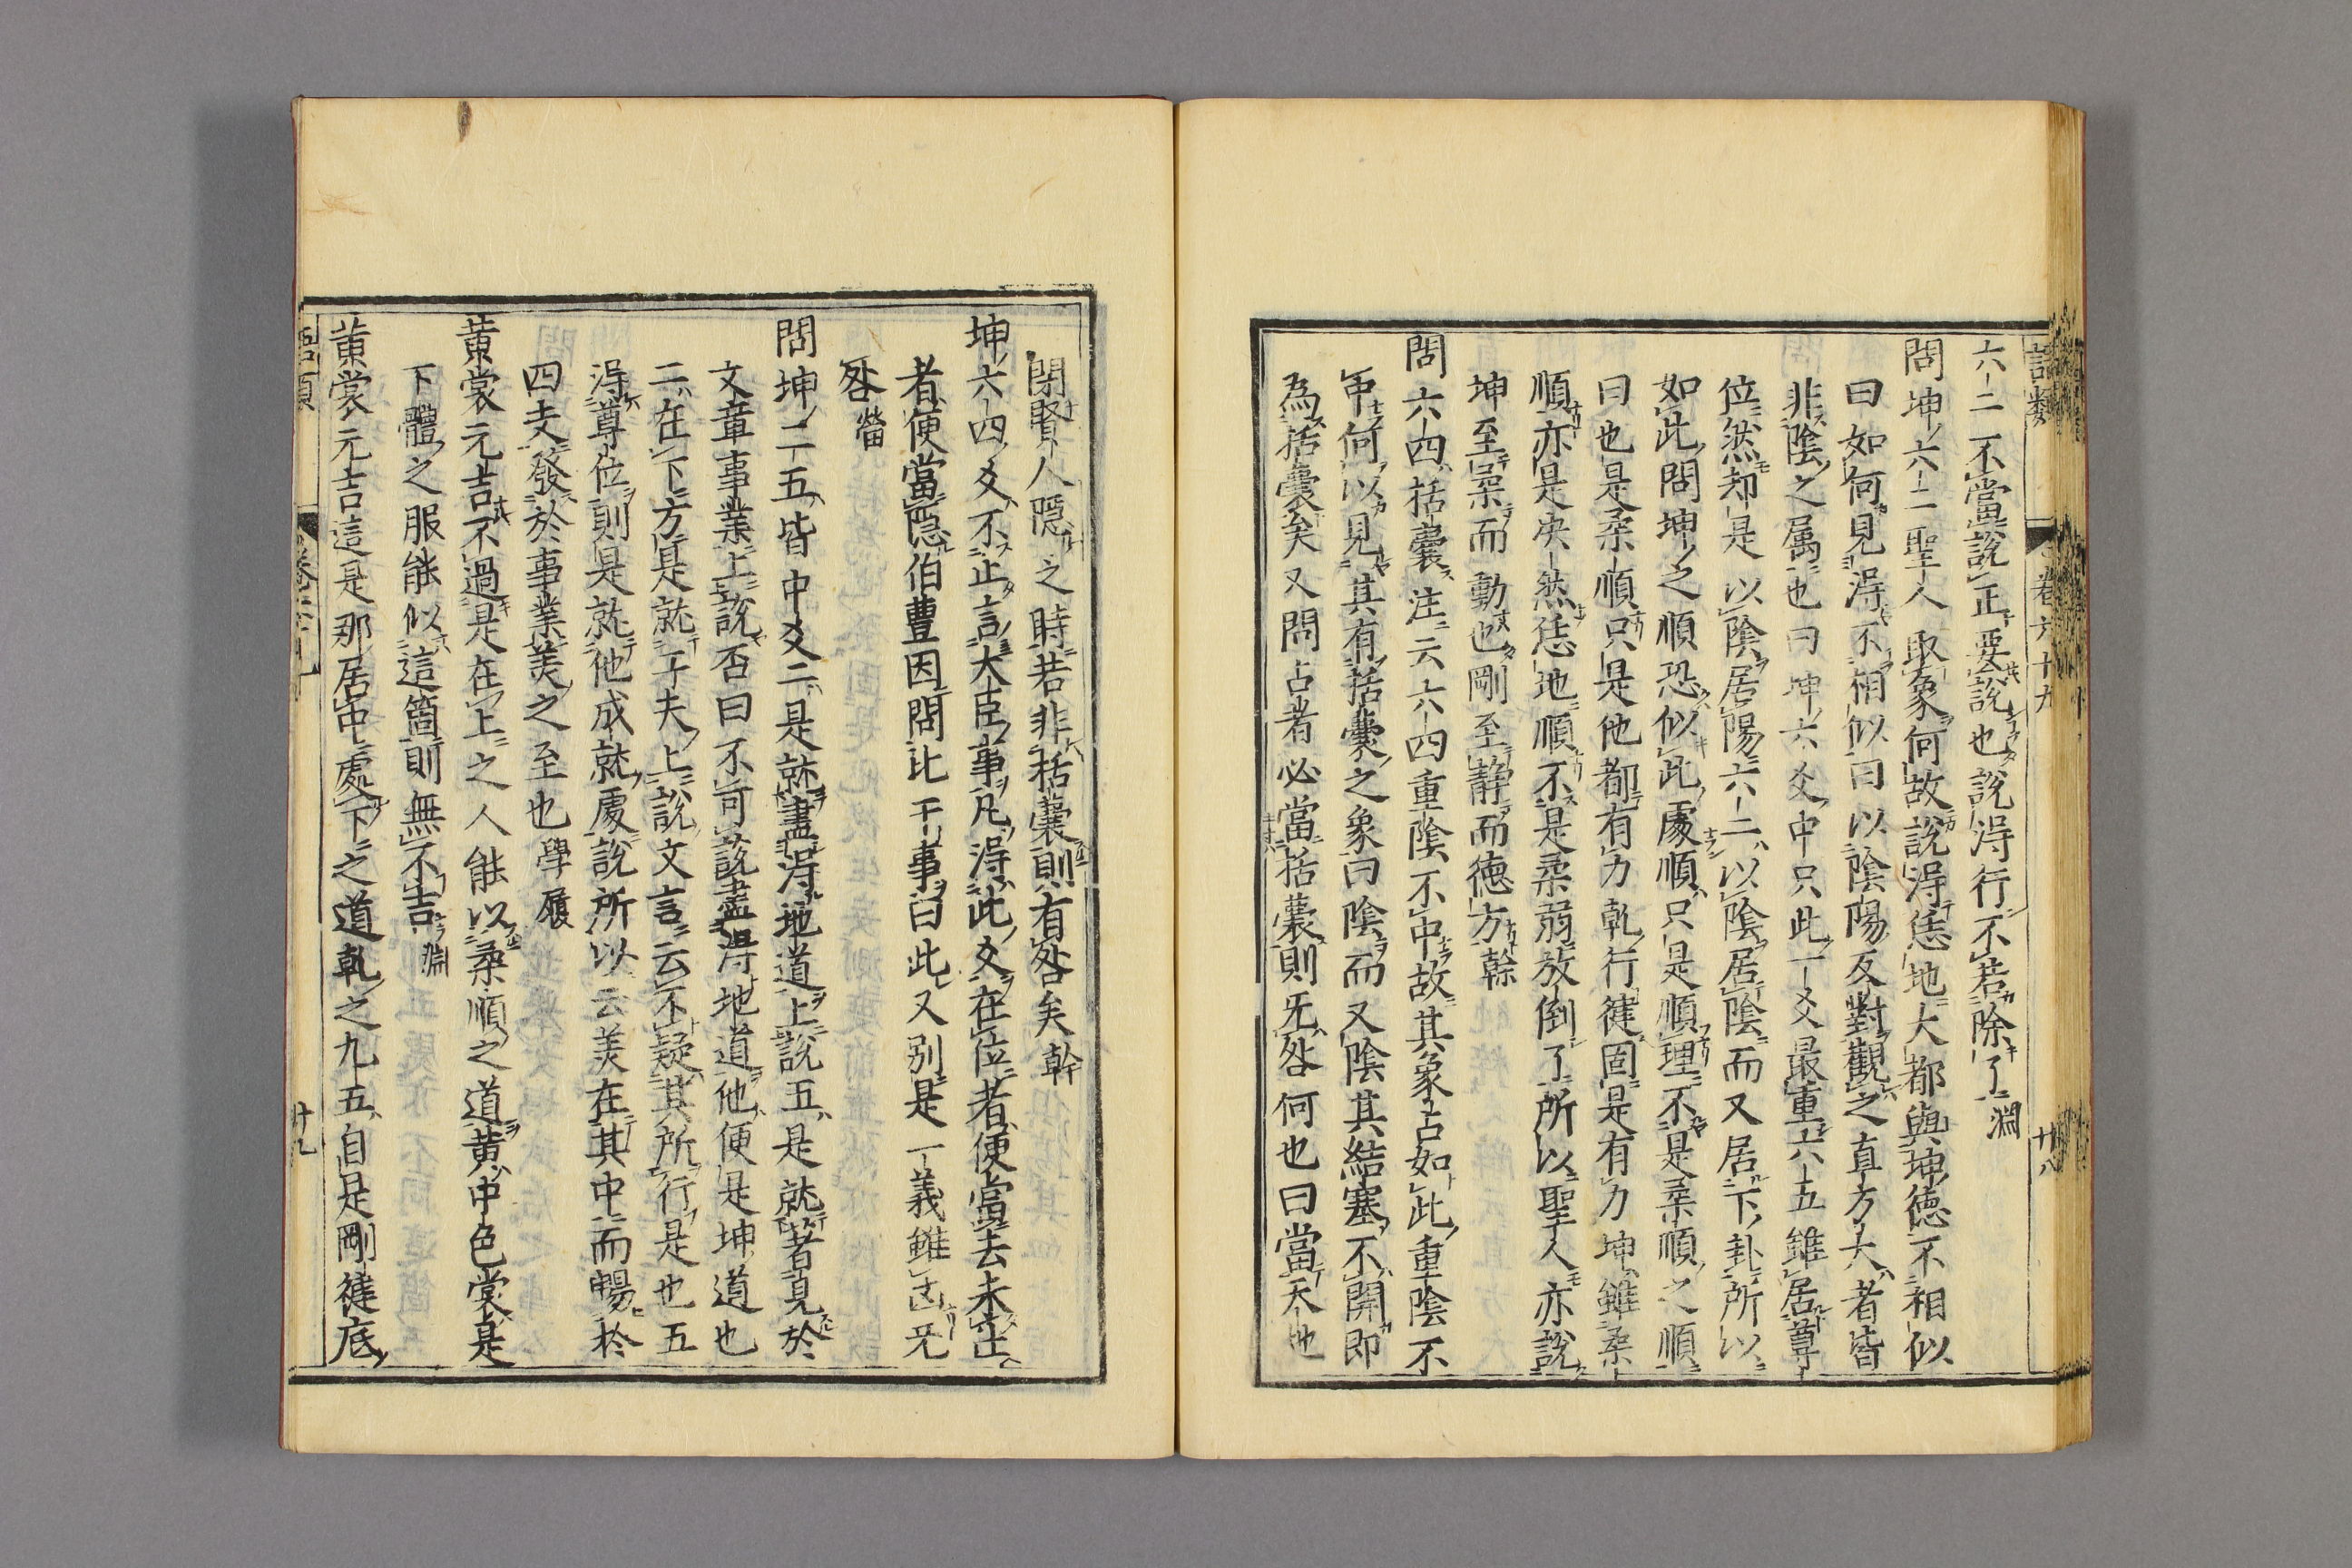 語類 卷六十九 廿八
六二不當說正要說也說得行不若除了淵
問坤六二聖人取象何故說得恁地大都與坤德不相似
曰如何見得不相似曰以陰陽反對觀之直方大者皆
非陰之属也曰坤六爻中只此一爻最重六五雖居尊
位然却是以陰居陽六二以陰居陰而又居下卦所以
如此問坤之順恐似此處順只是順理不是柔順之順
曰也是柔順只是他都有力乾行徤固是有力坤雖柔
順亦是决然恁地順不是柔弱放倒了所以聖人亦說
坤至柔而動也剛至静而德方榦
問六四括囊注云六四重陰不中故其象占如此重陰不
中何以見其有括囊之象曰陰而又陰其結塞不開即
為括囊矣又問占者必當括囊則无咎何也曰當天地
閉賢人隱之時若非括囊則有咎矣榦
坤六四爻不止言大臣事凡得此爻在位者便當去未仕
者便當隱伯豊因問比干事曰此又别是一義雖凶无
咎㽦
問坤二五皆中爻二是就盡得地道上說五是就著見於
文章事業上說否曰不可說盡得地道他便是坤道也
二在下方是就工夫上說文言云不疑其所行是也五
得尊位則是就他成就處說所以云美在其中而暢於
四支發於事業美之至也學履
黄裳元吉不過是在上之人能以柔順之道黄中色裳是
下體之服能似這箇則無不吉淵
黄裳元吉這是那居中處下之道乾之九五自是剛徤底
語類 卷六十九 廿九